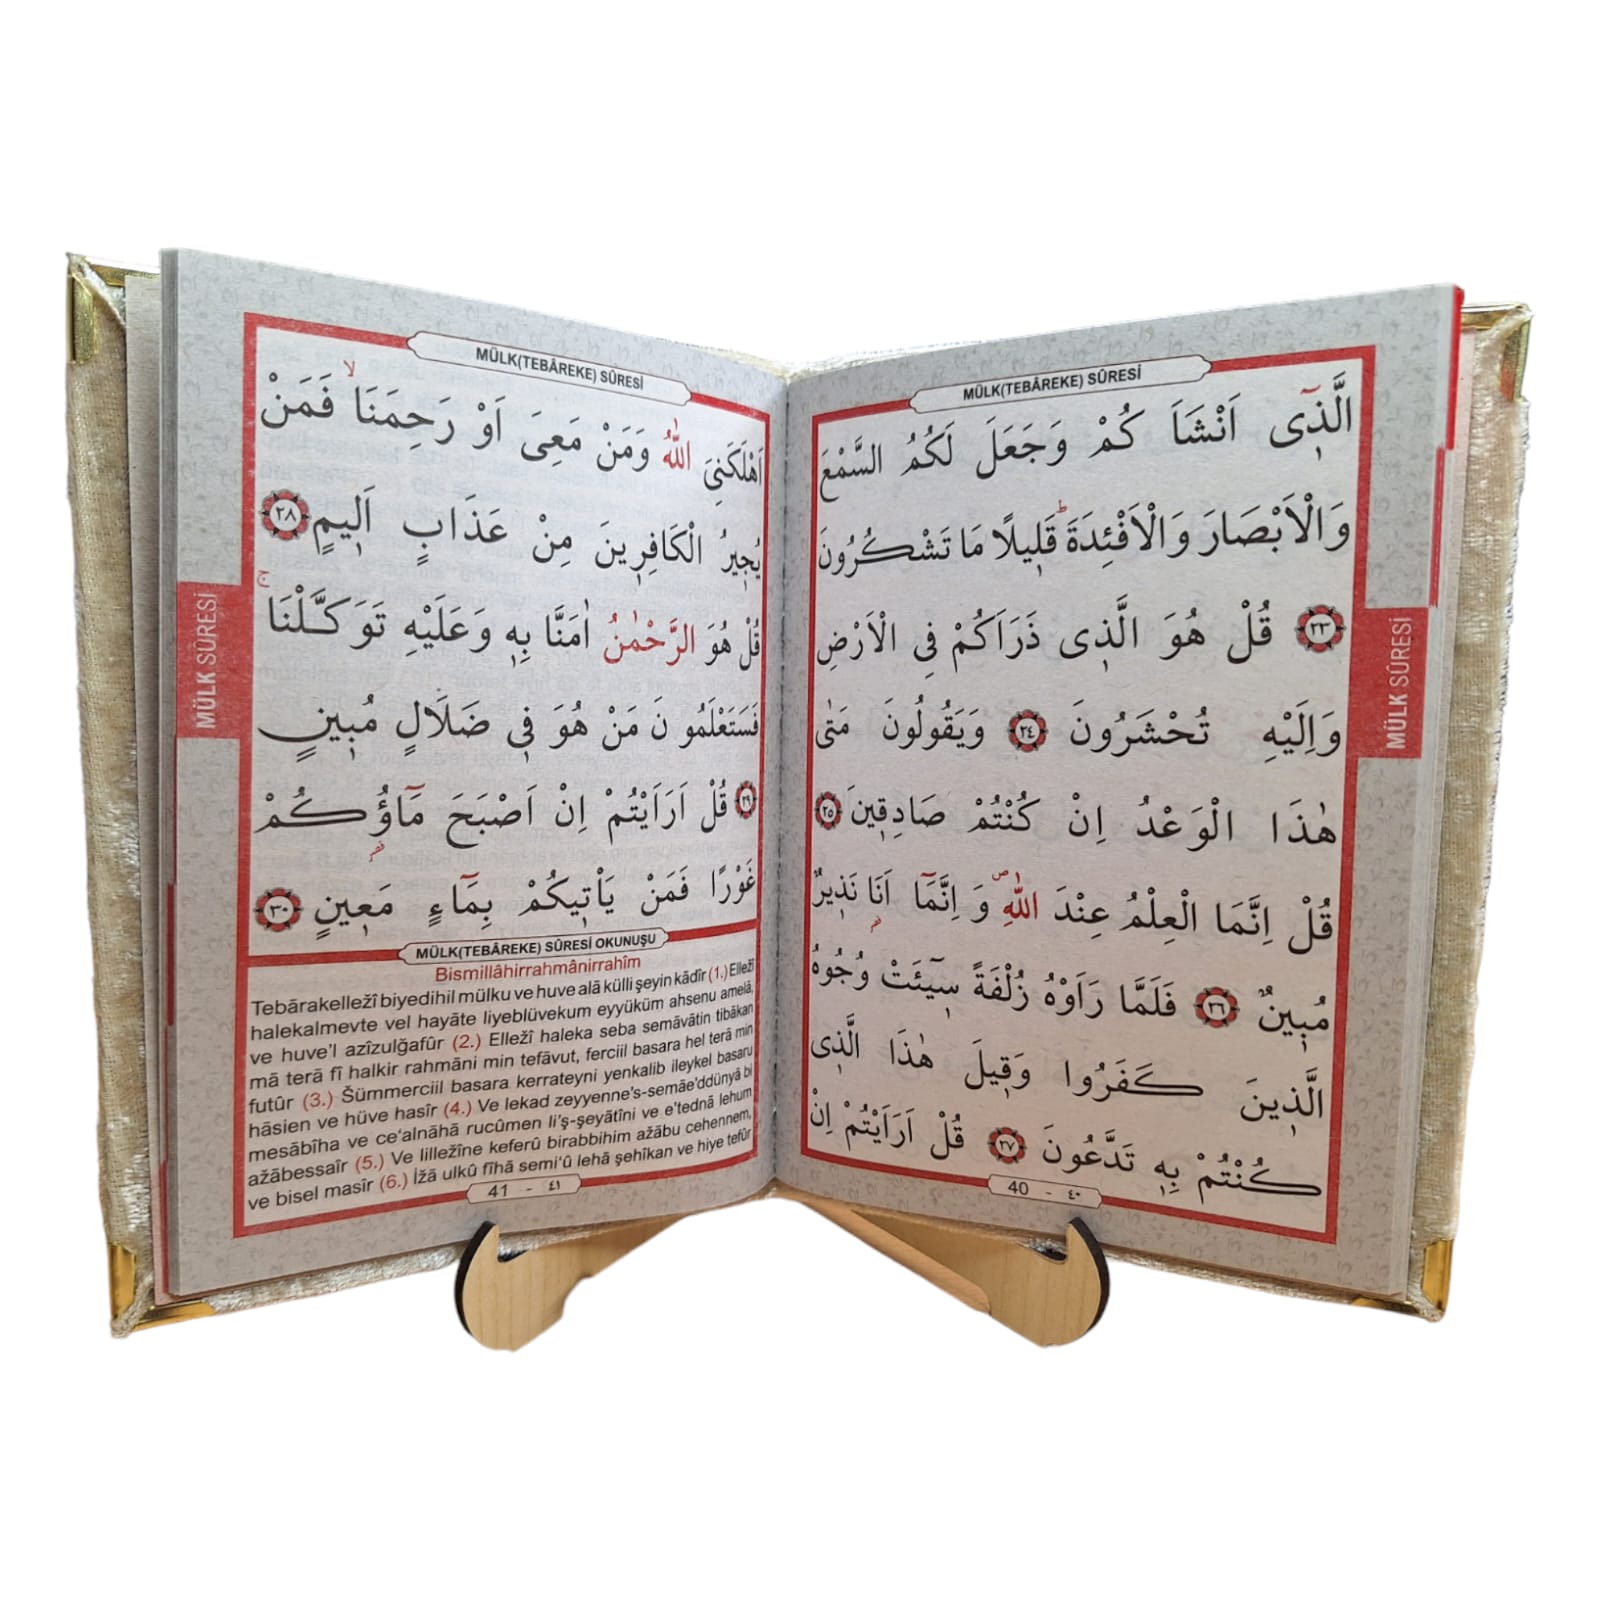 MÜLK(TEBÂREKE) SÛRESİ
الَّذ۪ٓى اَنْشَاَ كُمْ وَجَعَلَ لَكُمُ السَّمْعَ
وَالْاَبْصَارَ وَالْاَفْئِدَةَۜ قَل۪يلًا مَا تَشْكُرُونَ
﴿٢٣﴾ قُلْ هُوَ الَّذ۪ى ذَرَاَكُمْ فِى الْاَرْضِ
وَاِلَيْهِ تُحْشَرُونَ ﴿٢٤﴾ وَيَقُولُونَ مَتٰى
هٰذَا الْوَعْدُ اِنْ كُنْتُمْ صَادِق۪ينَ ﴿٢٥﴾
قُلْ اِنَّمَا الْعِلْمُ عِنْدَ اللّٰهِۖ وَ اِنَّمَٓا اَنَا نَذ۪يرٌ
مُب۪ينٌ ﴿٢٦﴾ فَلَمَّا رَاَوْهُ زُلْفَةً س۪ٓيـَٔتْ وُجُوهُ
الَّذ۪ينَ كَفَرُوا وَق۪يلَ هٰذَا الَّذ۪ى
كُنْتُمْ بِه۪ تَدَّعُونَ ﴿٢٧﴾ قُلْ اَرَاَيْتُمْ اِنْ
40 - ٤٠
MÜLK SÛRESİ
MÜLK(TEBÂREKE) SÛRESİ
اَهْلَكَنِىَ اللّٰهُ وَمَنْ مَعِىَ اَوْ رَحِمَنَاۙ فَمَنْ
يُج۪يرُ الْكَافِر۪ينَ مِنْ عَذَابٍ اَل۪يمٍ ﴿٢٨﴾
قُلْ هُوَ الرَّحْمٰنُ اٰمَنَّا بِه۪ وَعَلَيْهِ تَوَكَّلْنَاۚ
فَسَتَعْلَمُو نَ مَنْ هُوَ ف۪ى ضَلَالٍ مُب۪ينٍ
﴿٢٩﴾ قُلْ اَرَاَيْتُمْ اِنْ اَصْبَحَ مَٓاؤُكُمْ
غَوْرًا فَمَنْ يَاْت۪يكُمْ بِمَٓاءٍ مَع۪ينٍ ﴿٣٠﴾
MÜLK(TEBÂREKE) SÛRESİ OKUNUŞU
Bismillâhirrahmânirrahîm
Tebārakelležî biyedihil mülku ve huve alā külli şeyin kādîr (1.) Elležî
halekalmevte vel hayāte liyeblüvekum eyyüküm ahsenu amelā,
ve huve'l azîzulğafûr (2.) Elležî haleka seba semāvātin tibākan
mā terā fî halkir rahmāni min tefāvut, ferciil basara hel terā min
futûr (3.) Šümmerciil basara kerrateyni yenkalib ileykel basaru
hāsien ve hüve hasîr (4.) Ve lekad zeyyenne's-semāe'ddünyā bi
mesābîha ve ce'alnāhā rucûmen li'ş-şeyātîni ve e'tednā lehum
ažābessaîr (5.) Ve lilležîne keferû birabbihim ažābu cehennem,
ve bisel masîr (6.) İžā ulkû fîhā semi'û lehā şehîkan ve hiye tefûr
41 - ٤١
MÜLK SÛRESİ